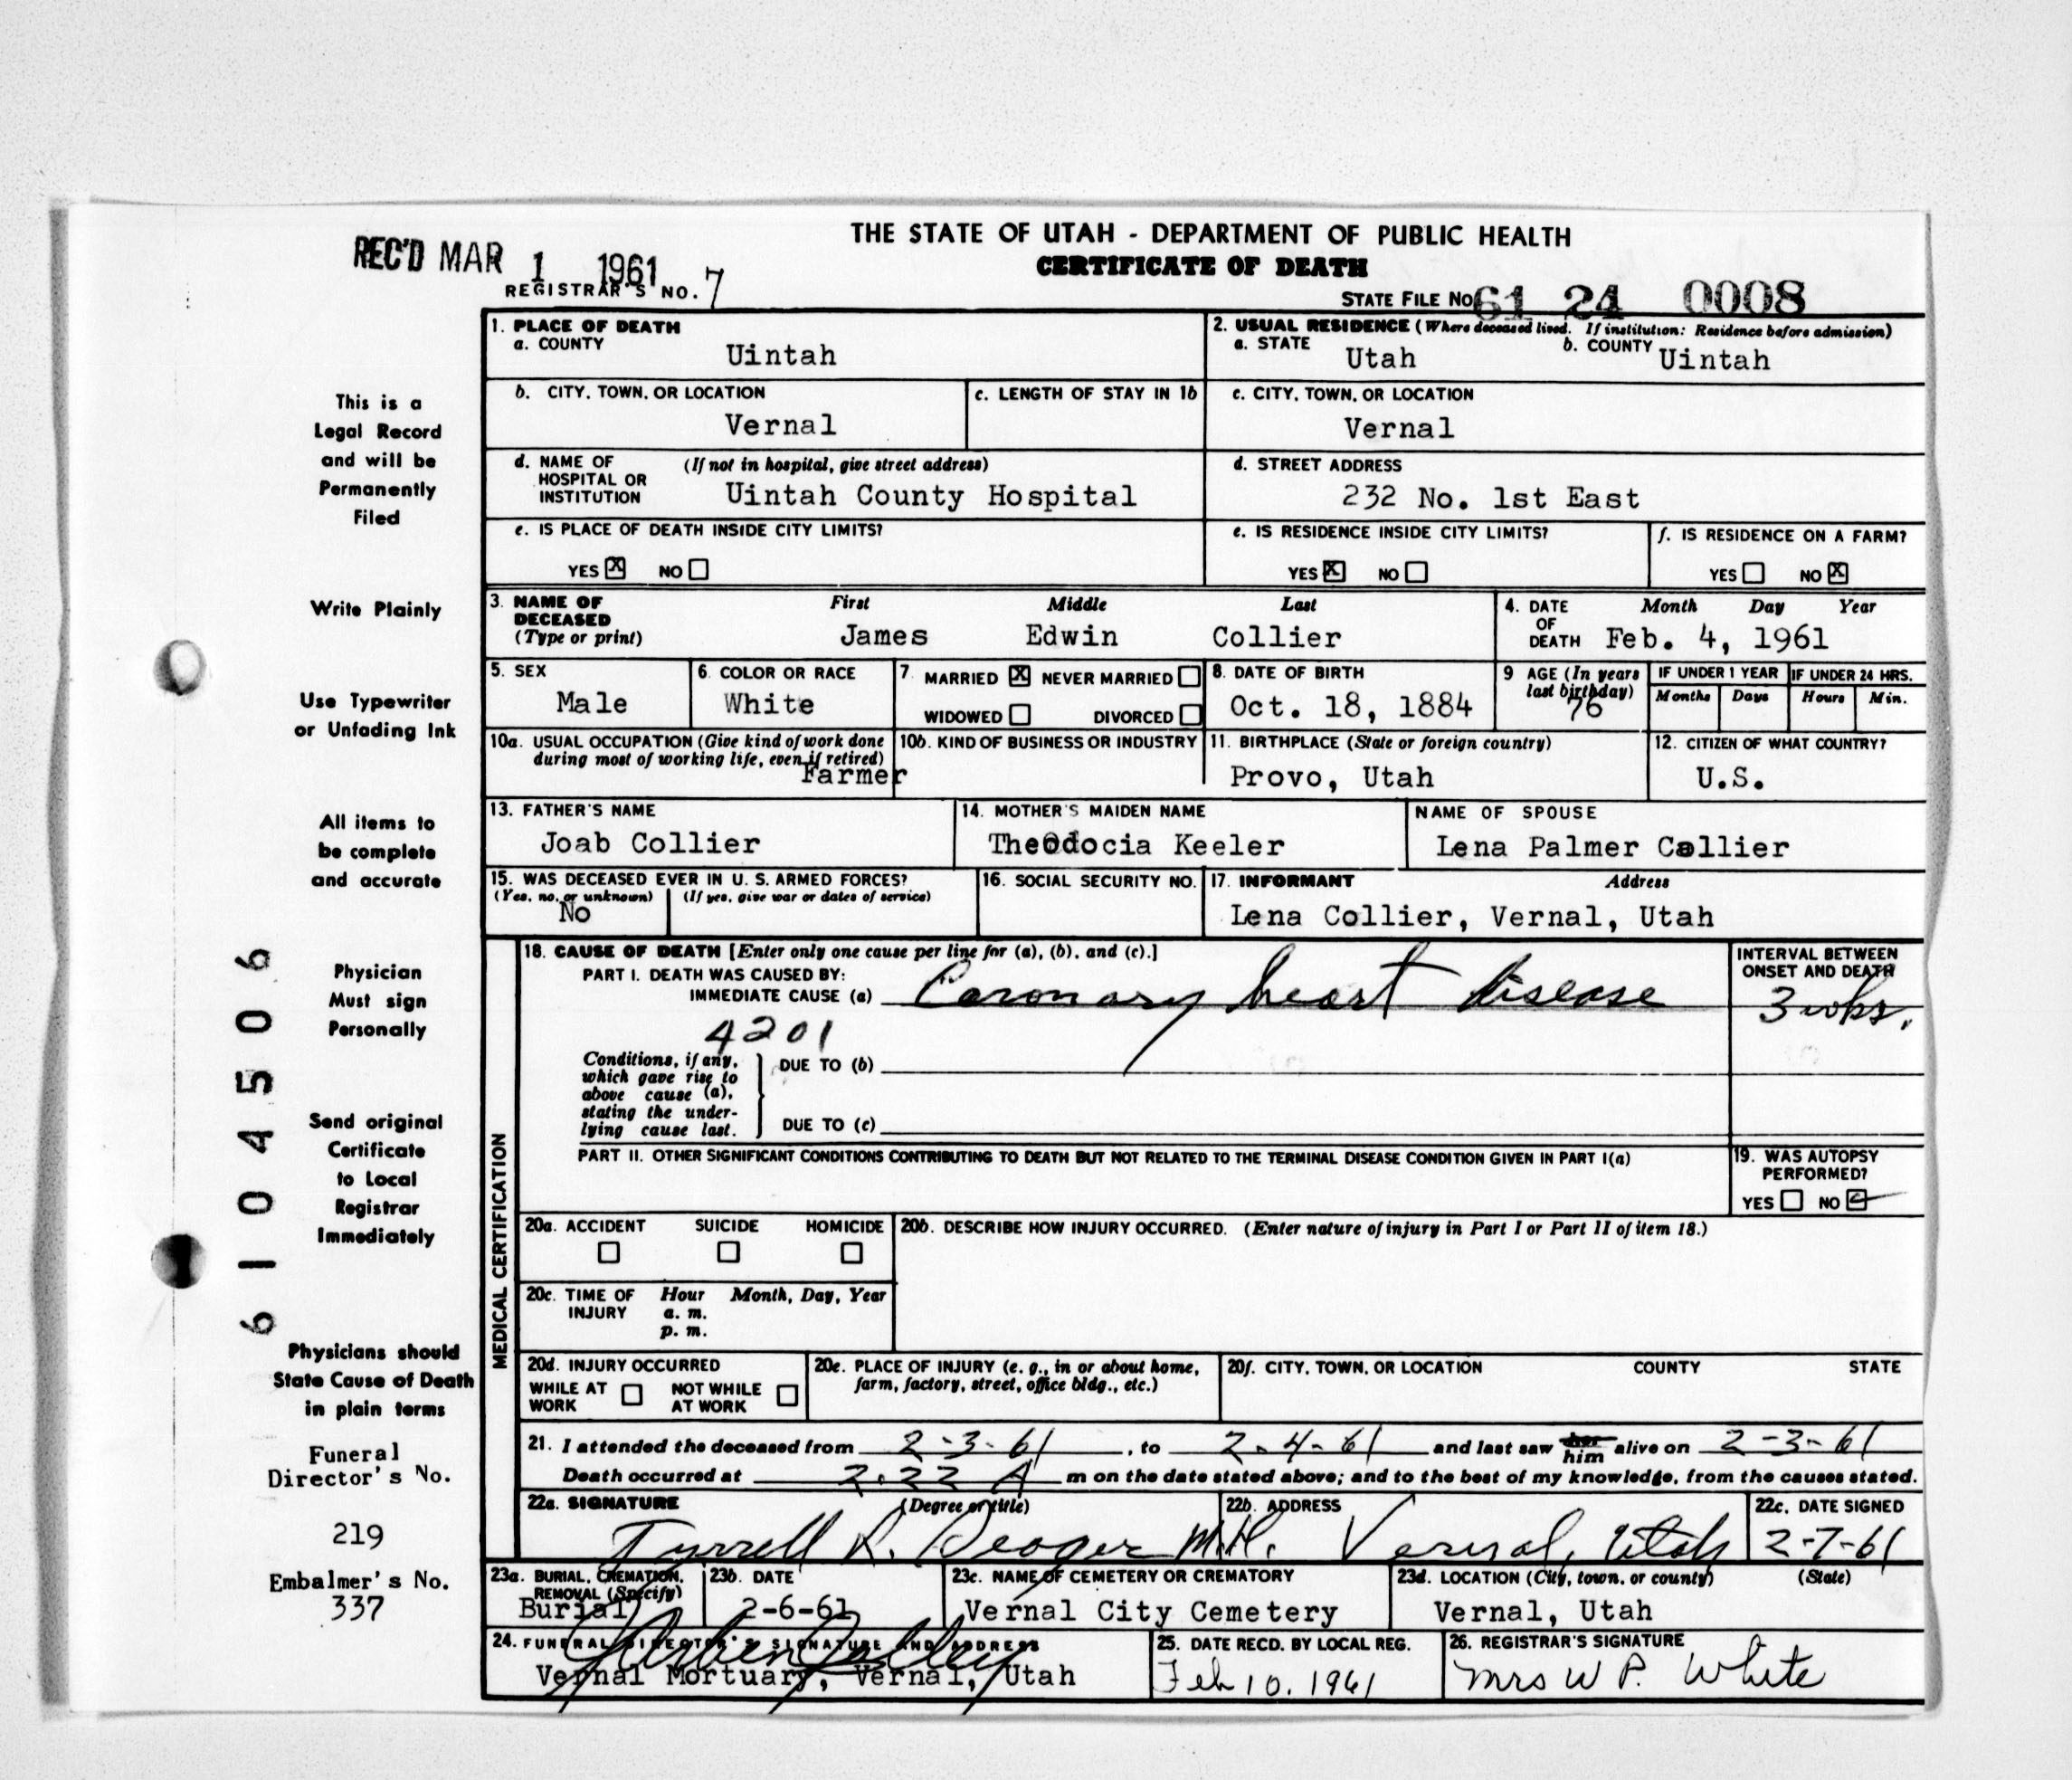 THE STATE OF UTAH - DEPARTMENT OF PUBLIC HEALTH
CERTIFICATE OF DEATH
REC'D MAR 1 1961
REGISTRAR'S NO. 7
STATE FILE No. 61 24 0008
1. PLACE OF DEATH
a. COUNTY
Uintah
2. USUAL RESIDENCE (Where deceased lived. If institution: Residence before admission)
a. STATE Utah b. COUNTY Uintah
b. CITY, TOWN, OR LOCATION
Vernal
c. LENGTH OF STAY IN 1b
c. CITY, TOWN, OR LOCATION
Vernal
d. NAME OF HOSPITAL OR INSTITUTION (If not in hospital, give street address)
Uintah County Hospital
d. STREET ADDRESS
232 No. 1st East
e. IS PLACE OF DEATH INSIDE CITY LIMITS?
YES X NO
e. IS RESIDENCE INSIDE CITY LIMITS?
YES X NO
f. IS RESIDENCE ON A FARM?
YES NO X
3. NAME OF DECEASED (Type or print)
First Middle Last
James Edwin Collier
4. DATE OF DEATH Month Day Year
Feb. 4, 1961
5. SEX
Male
6. COLOR OR RACE
White
7. MARRIED X NEVER MARRIED
WIDOWED DIVORCED
8. DATE OF BIRTH
Oct. 18, 1884
9 AGE (In years last birthday)
76
IF UNDER 1 YEAR
Months Days
IF UNDER 24 HRS.
Hours Min.
10a. USUAL OCCUPATION (Give kind of work done during most of working life, even if retired)
Farmer
10b. KIND OF BUSINESS OR INDUSTRY
11. BIRTHPLACE (State or foreign country)
Provo, Utah
12. CITIZEN OF WHAT COUNTRY?
U.S.
13. FATHER'S NAME
Joab Collier
14. MOTHER'S MAIDEN NAME
Theodocia Keeler
NAME OF SPOUSE
Lena Palmer Collier
15. WAS DECEASED EVER IN U. S. ARMED FORCES?
(Yes, no, or unknown) (If yes, give war or dates of service)
No
16. SOCIAL SECURITY NO.
17. INFORMANT Address
Lena Collier, Vernal, Utah
MEDICAL CERTIFICATION
18. CAUSE OF DEATH [Enter only one cause per line for (a), (b), and (c).]
PART I. DEATH WAS CAUSED BY:
IMMEDIATE CAUSE (a) Coronary heart disease
4201
INTERVAL BETWEEN ONSET AND DEATH
3 wks.
Conditions, if any, which gave rise to above cause (a), stating the underlying cause last.
DUE TO (b)
DUE TO (c)
PART II. OTHER SIGNIFICANT CONDITIONS CONTRIBUTING TO DEATH BUT NOT RELATED TO THE TERMINAL DISEASE CONDITION GIVEN IN PART I(a)
19. WAS AUTOPSY PERFORMED?
YES NO
20a. ACCIDENT SUICIDE HOMICIDE
20b. DESCRIBE HOW INJURY OCCURRED. (Enter nature of injury in Part I or Part II of item 18.)
20c. TIME OF INJURY Hour Month, Day, Year
a. m.
p. m.
20d. INJURY OCCURRED
WHILE AT WORK NOT WHILE AT WORK
20e. PLACE OF INJURY (e. g., in or about home, farm, factory, street, office bldg., etc.)
20f. CITY, TOWN, OR LOCATION COUNTY STATE
21. I attended the deceased from 2-3-61, to 2-4-61 and last saw her him alive on 2-3-61
Death occurred at 2:22 A m on the date stated above; and to the best of my knowledge, from the causes stated.
22a. SIGNATURE (Degree or title)
Tyrrell R. Seager M.D.
22b. ADDRESS
Vernal, Utah
22c. DATE SIGNED
2-7-61
23a. BURIAL, CREMATION, REMOVAL (Specify)
Burial
23b. DATE
2-6-61
23c. NAME OF CEMETERY OR CREMATORY
Vernal City Cemetery
23d. LOCATION (City, town, or county) (State)
Vernal, Utah
24. FUNERAL DIRECTOR'S SIGNATURE AND ADDRESS
Vernal Mortuary, Vernal, Utah
25. DATE RECD. BY LOCAL REG.
Feb 10. 1961
26. REGISTRAR'S SIGNATURE
Mrs W P. White
This is a
Legal Record
and will be
Permanently
Filed
Write Plainly
Use Typewriter
or Unfading Ink
All items to
be complete
and accurate
Physician
Must sign
Personally
Send original
Certificate
to Local
Registrar
Immediately
Physicians should
State Cause of Death
in plain terms
Funeral
Director's No.
219
Embalmer's No.
337
6104506